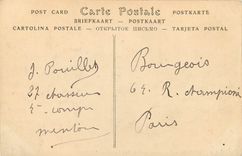 POST CARD Carte Postale POSTKARTE
BRIEFKAART — POSTKAART
CARTOLINA POSTALE — ОТКРЫТОЕ ПИСЬМО — TARJETA POSTAL
J. Pouillet
27 chasseurs
5e comp
menton
Bourgeois
64. R. championnet
Paris